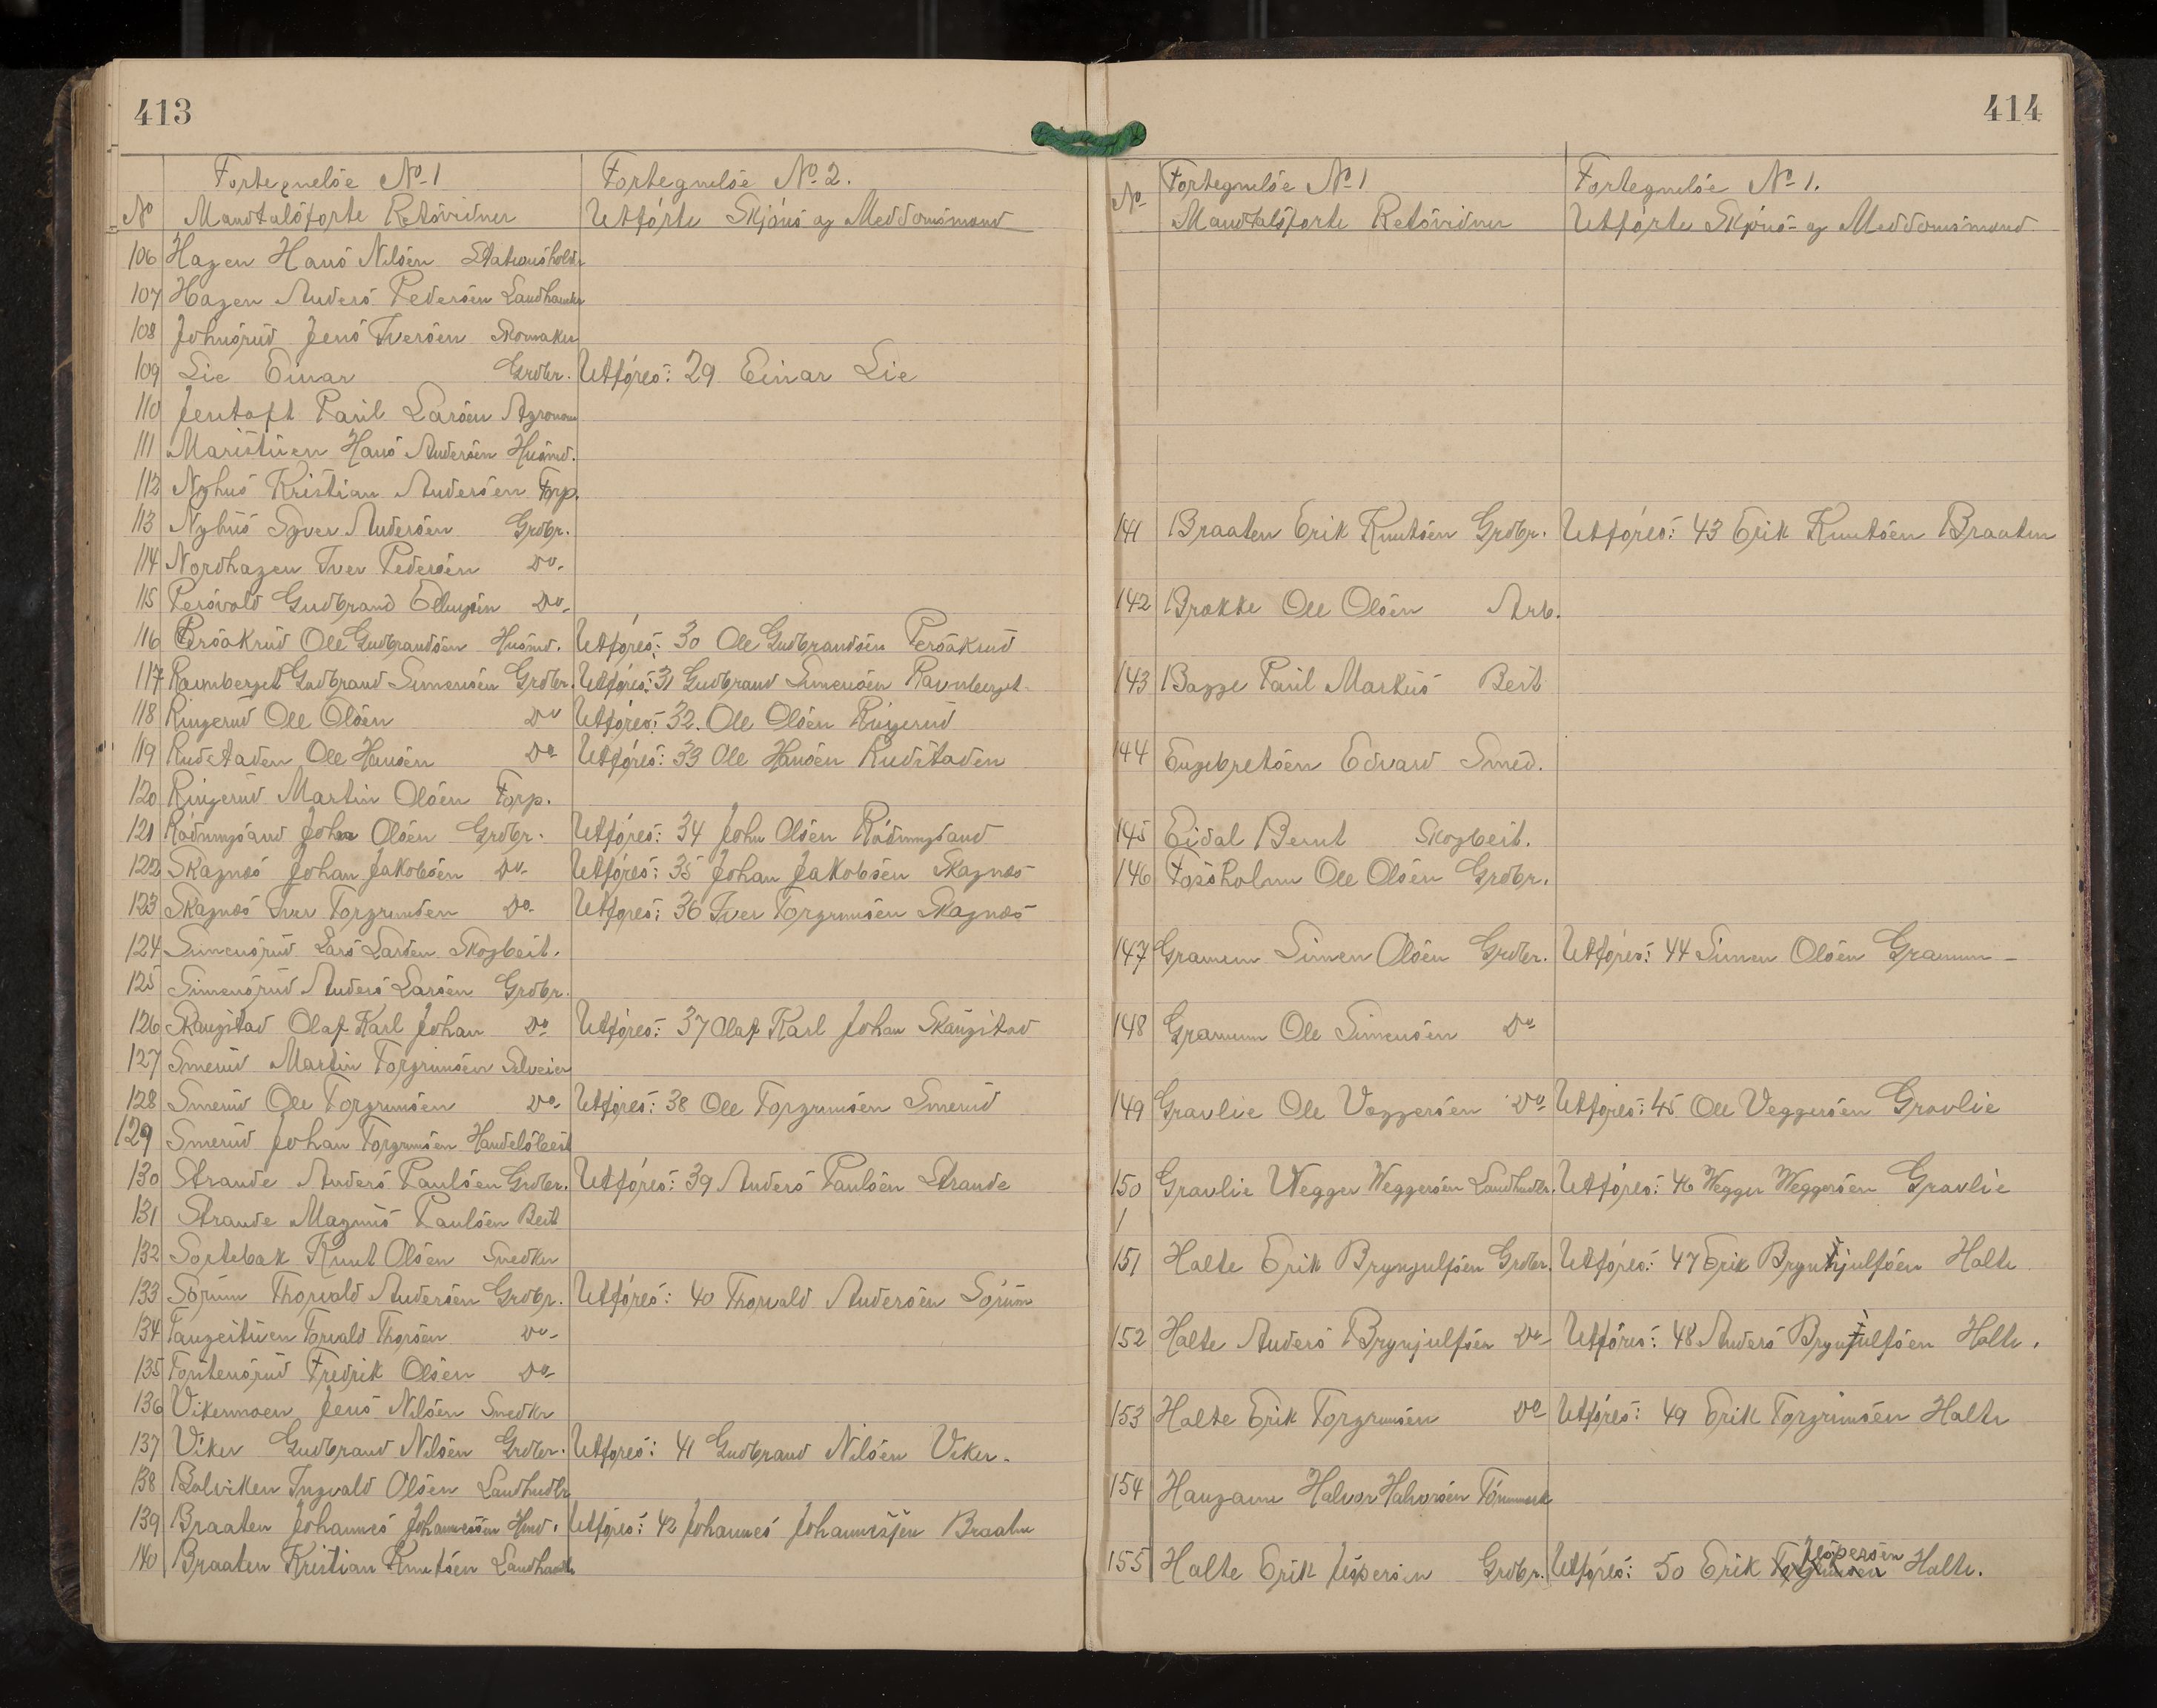 413
Fortegnelse No 1 Fortegnelse No 2.
No Mandtalsførte Retsvidner Utførte Skjøns og Meddomsmænd
106 Hagen Hans Nilsen Stationsholder
107 Hagen Anders Pedersen Landhandler
108 Johnsrud Jens Iversen Skomaker
109 Lie Einar Grdbr. Utføres: 29 Einar Lie
110 Jentoft Paul Larsen Agronom
111 Maristuen Hans Andersen Husmd.
112 Nyhus Kristian Andersen Forp.
113 Nyhus Syver Andersen Grdbr.
114 Nordhagen Iver Pedersen Do-
115 Persvold Gudbrand Ellingsen Do-
116 Persakrud Ole Gudbrandsen Husmd. Utføres: 30 Ole Gudbrandsen Persakrud
117 Ravnberget Gudbrand Simensen Grdbr. Utføres: 31 Gudbrand Simensen Ravnberget
118 Ringerud Ole Olsen Do Utføres: 32. Ole Olsen Ringerud
119 Rudstaden Ole Hansen Do- Utføres: 33 Ole Hansen Rudstaden
120 Ringerud Martin Olsen Forp.
121 Rødningsand John Olsen Grdbr. Utføres: 34 John Olsen Rødningsand
122 Skagnæs Johan Jakobsen Do- Utføres: 35 Johan Jakobsen Skagnæs
123 Skagnæs Iver Torgrimsen Do- Utføres: 36 Iver Torgrimsen Skagnæs
124 Simensrud Lars Larsen Skogbest.
125 Simensrud Anders Larsen Grdbr.
126 Skaugstad Olaf Karl Johan Do Utføres: 37 Olaf Karl Johan Skaugstad
127 Smerud Martin Torgrimsen Selveier
128 Smerud Ole Torgrimsen Do- Utføres: 38 Ole Torgrimsen Smerud
129 Smerud Johan Torgrimsen Handelsbest
130 Strande Anders Paulsen Grdbr. Utføres: 39 Anders Paulsen Strande
131 Strande Magnus Paulsen Best
132 Sortebak Knut Olsen Snedker
133 Sørum Thorvald Andersen Grdbr. Utføres: 40 Thorvald Andersen Sørum
134 Torvald Thorsen Do-
135 Fredrik Olsen Do-
136 Vikermoen Jens Nilsen Snedkr
137 Viker Gudbrand Nilsen Grdbr. Utføres: 41 Gudbrand Nilsen Viker.
138 Bolviken Ingvald Olsen Landhndlr
139 Braaten Johannes Johannessen Hmd. Utføres: 42 Johannes Johannessen Braaten
140 Braaten Kristian Knutsen Landhandl
414
No Fortegnelse No 1 Fortegnelse No 1.
Mandtalsførte Retsvidner Utførte Skjøns- og Meddomsmænd
141 Braaten Erik Knutsen Grdbr. Utføres: 43 Erik Knutsen Braaten
142 Brække Ole Olsen Arb.
143 Bagge Paul Markus Best
144 Engebretsen Edvard Smed.
145 Eidal Bernt Skogbest.
146 Fossholm Ole Olsen Grdbr.
147 Gramum Simen Olsen Grdbr. Utføres: 44 Simen Olsen Gramum
148 Gramum Ole Simensen Do
149 Gravlie Ole Veggersen Do Utføres: 45 Ole Veggersen Gravlie
150 Gravlie Wegger Weggersen Landhndlr. Utføres: 46 Wegger Weggersen Gravlie
151 Halte Erik Brynjulfsen Grdbr. Utføres: 47 Erik Brynjulfsen Halte
152 Halte Anders Brynjulfsen Do Utføres: 48 Anders Brynjulfsen Halte.
153 Halte Erik Torgrimsen Do Utføres: 49 Erik Torgrimsen Halte
154 Halvor Halvorsen Tømmerk
155 Halte Erik Jespersen Grdbr. Utføres: 50 Erik Torgrimsen Jespersen Halte.